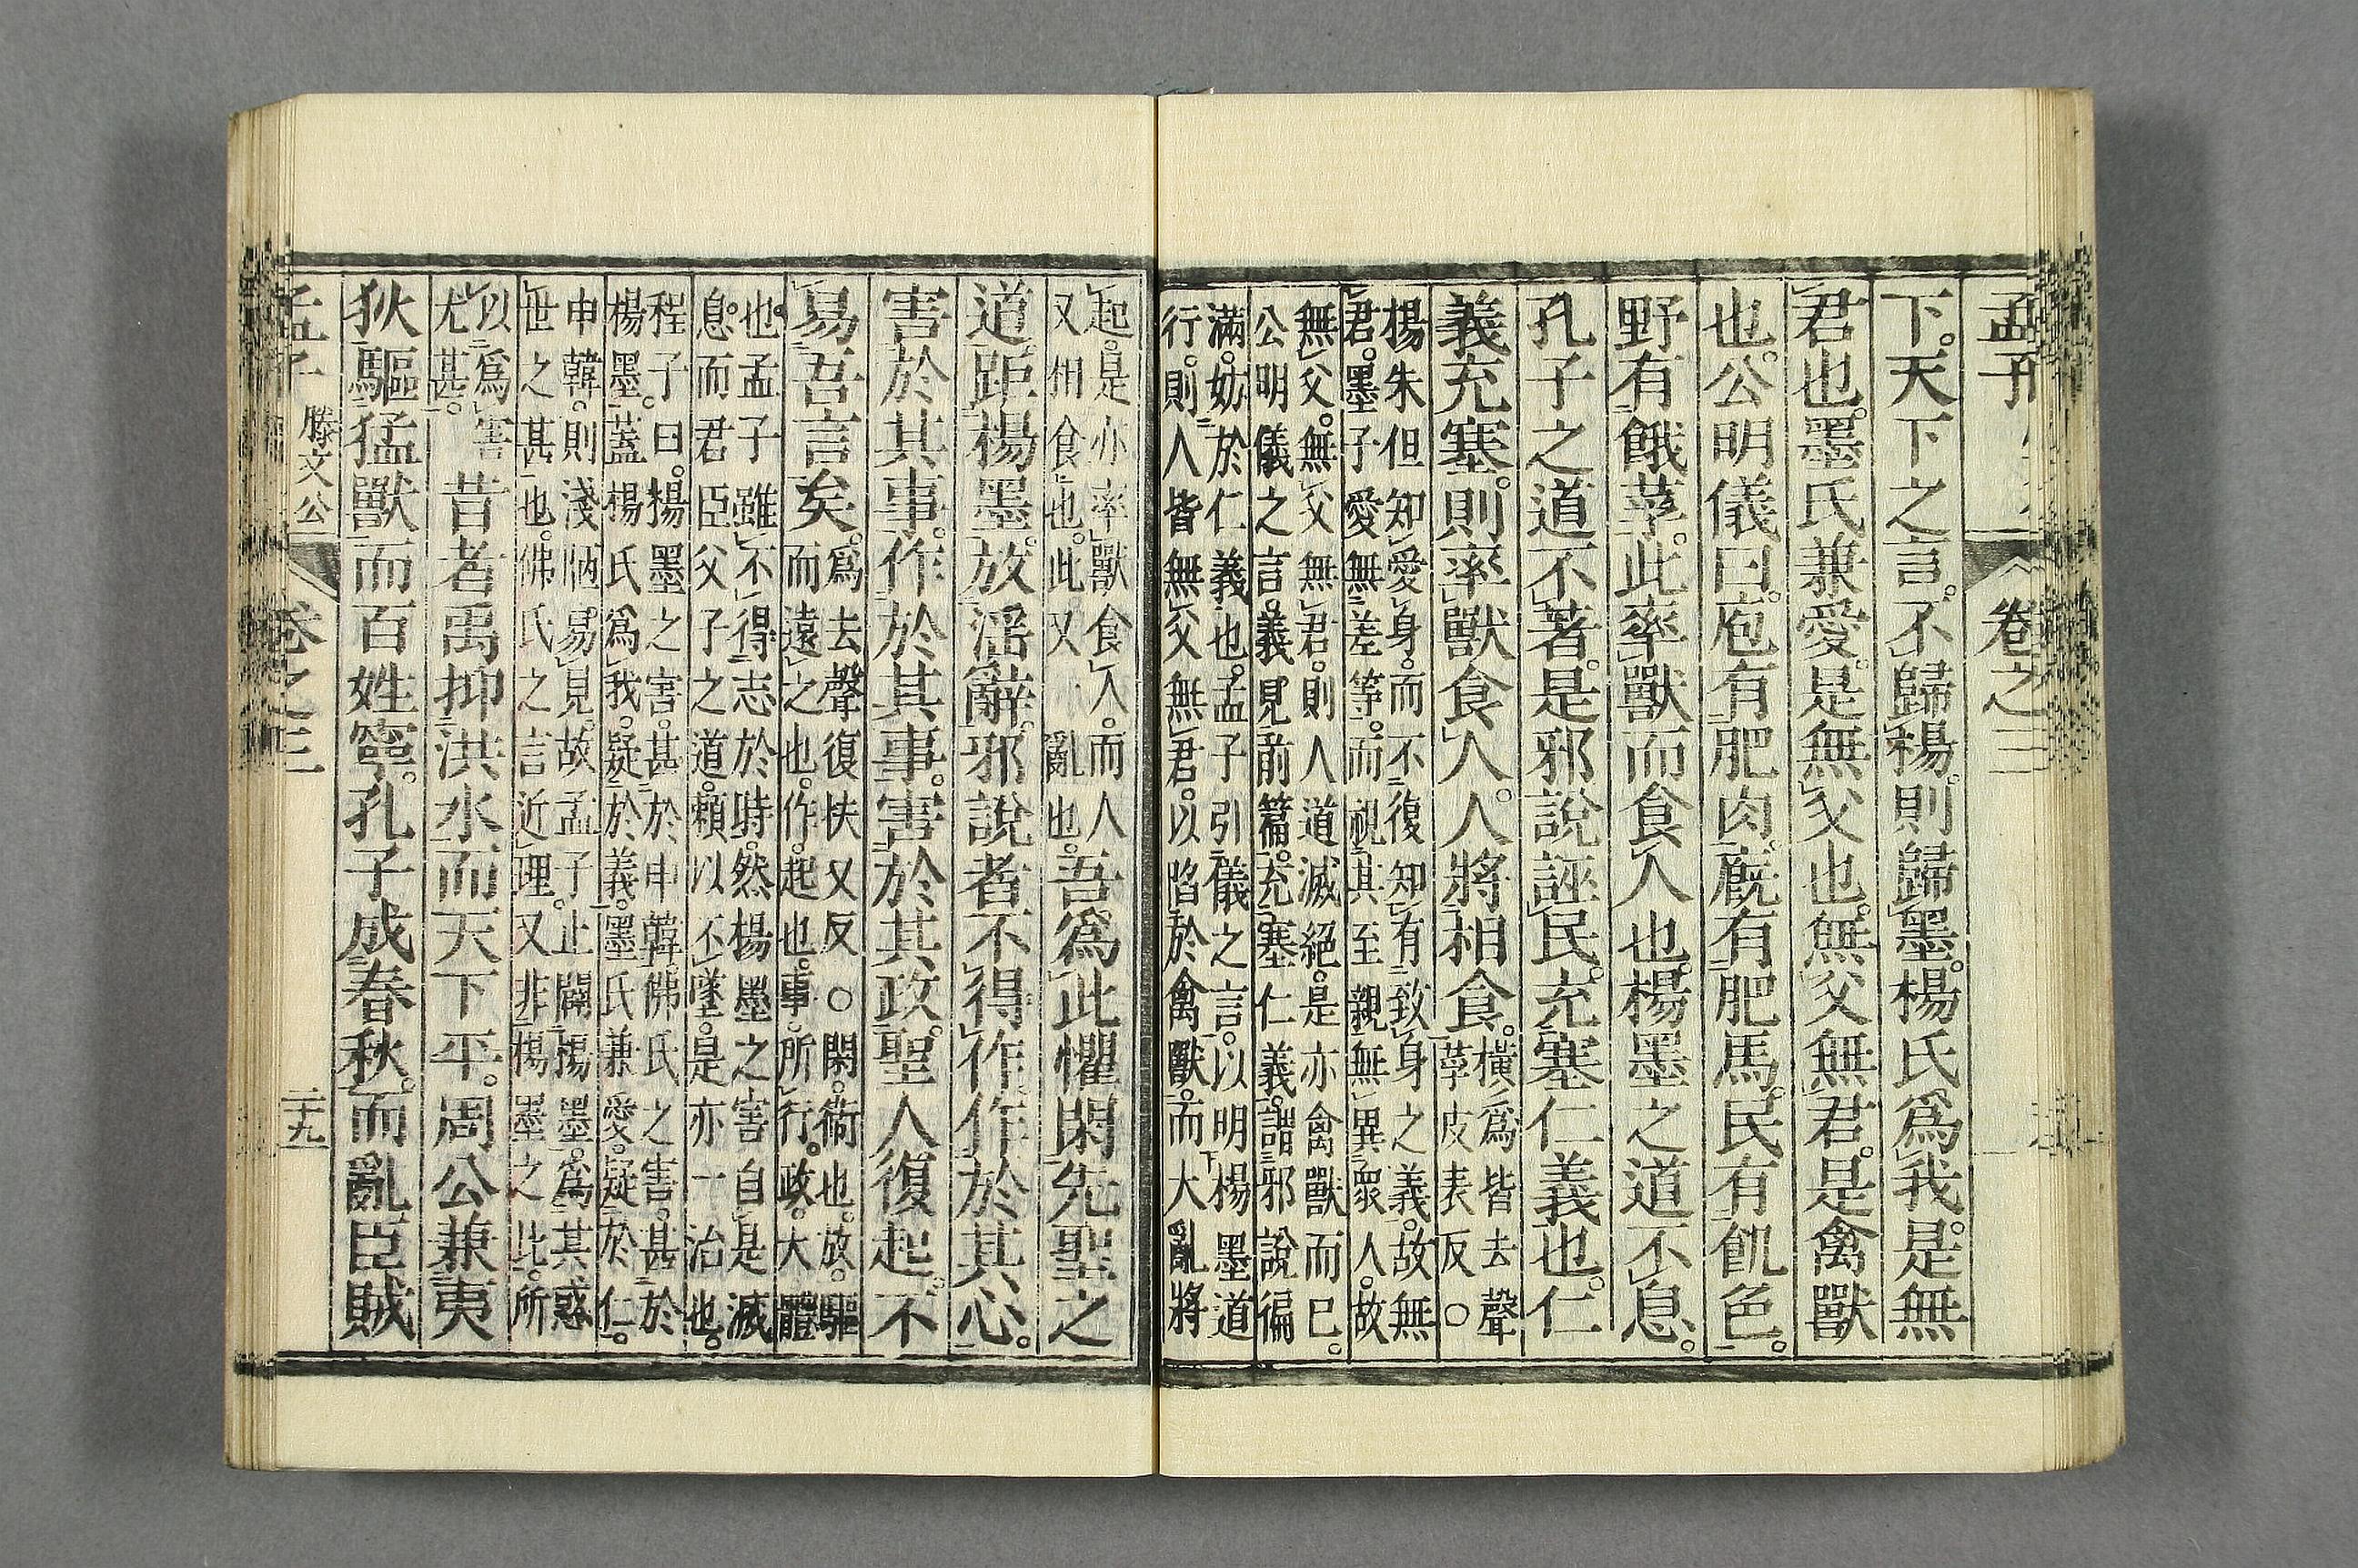 孟子
卷之三
下。天下之言。不歸楊。則歸墨。楊氏爲我。是無
君也。墨氏兼愛。是無父也。無父無君。是禽獸
也。公明儀曰。庖有肥肉。廐有肥馬。民有飢色。
野有餓莩。此率獸而食人也。楊墨之道不息。
孔子之道不著。是邪說誣民。充塞仁義也。仁
義充塞。則率獸食人。人將相食。
橫爲皆去聲
莩皮表反○
楊朱但知愛身。而不復知有致身之義。故無
君。墨子愛無差等。而視其至親無異衆人。故
無父。無父無君。則人道滅絕。是亦禽獸而已。
公明儀之言。義見前篇。充塞仁義。謂邪說徧
滿。妨於仁義也。孟子引儀之言。以明楊墨道
行。則人皆無父無君。以陷於禽獸。而大亂將
起。是亦率獸食人。而人
又相食也。此又 亂也。
吾爲此懼。閑先聖之
道。距楊墨。放淫辭。邪說者不得作。作於其心。
害於其事。作於其事。害於其政。聖人復起。不
易吾言矣。
爲去聲復扶又反○閑。衛也。放。驅
而遠之也。作。起也。事。所行。政。大體
也。孟子雖不得志於時。然楊墨之害自是滅
息。而君臣父子之道。賴以不墜。是亦一治也。
程子曰。楊墨之害。甚於申韓。佛氏之害。甚於
楊墨。蓋楊氏爲我。疑於義。墨氏兼愛。疑於仁。
申韓。則淺陋易見。故孟子止闢楊墨。爲其惑
世之甚也。佛氏之言近理。又非楊墨之比。所
以爲害
尤甚。
昔者禹抑洪水而天下平。周公兼夷
狄驅猛獸而百姓寧。孔子成春秋。而亂臣賊
孟子
滕文公
卷之三
二十九